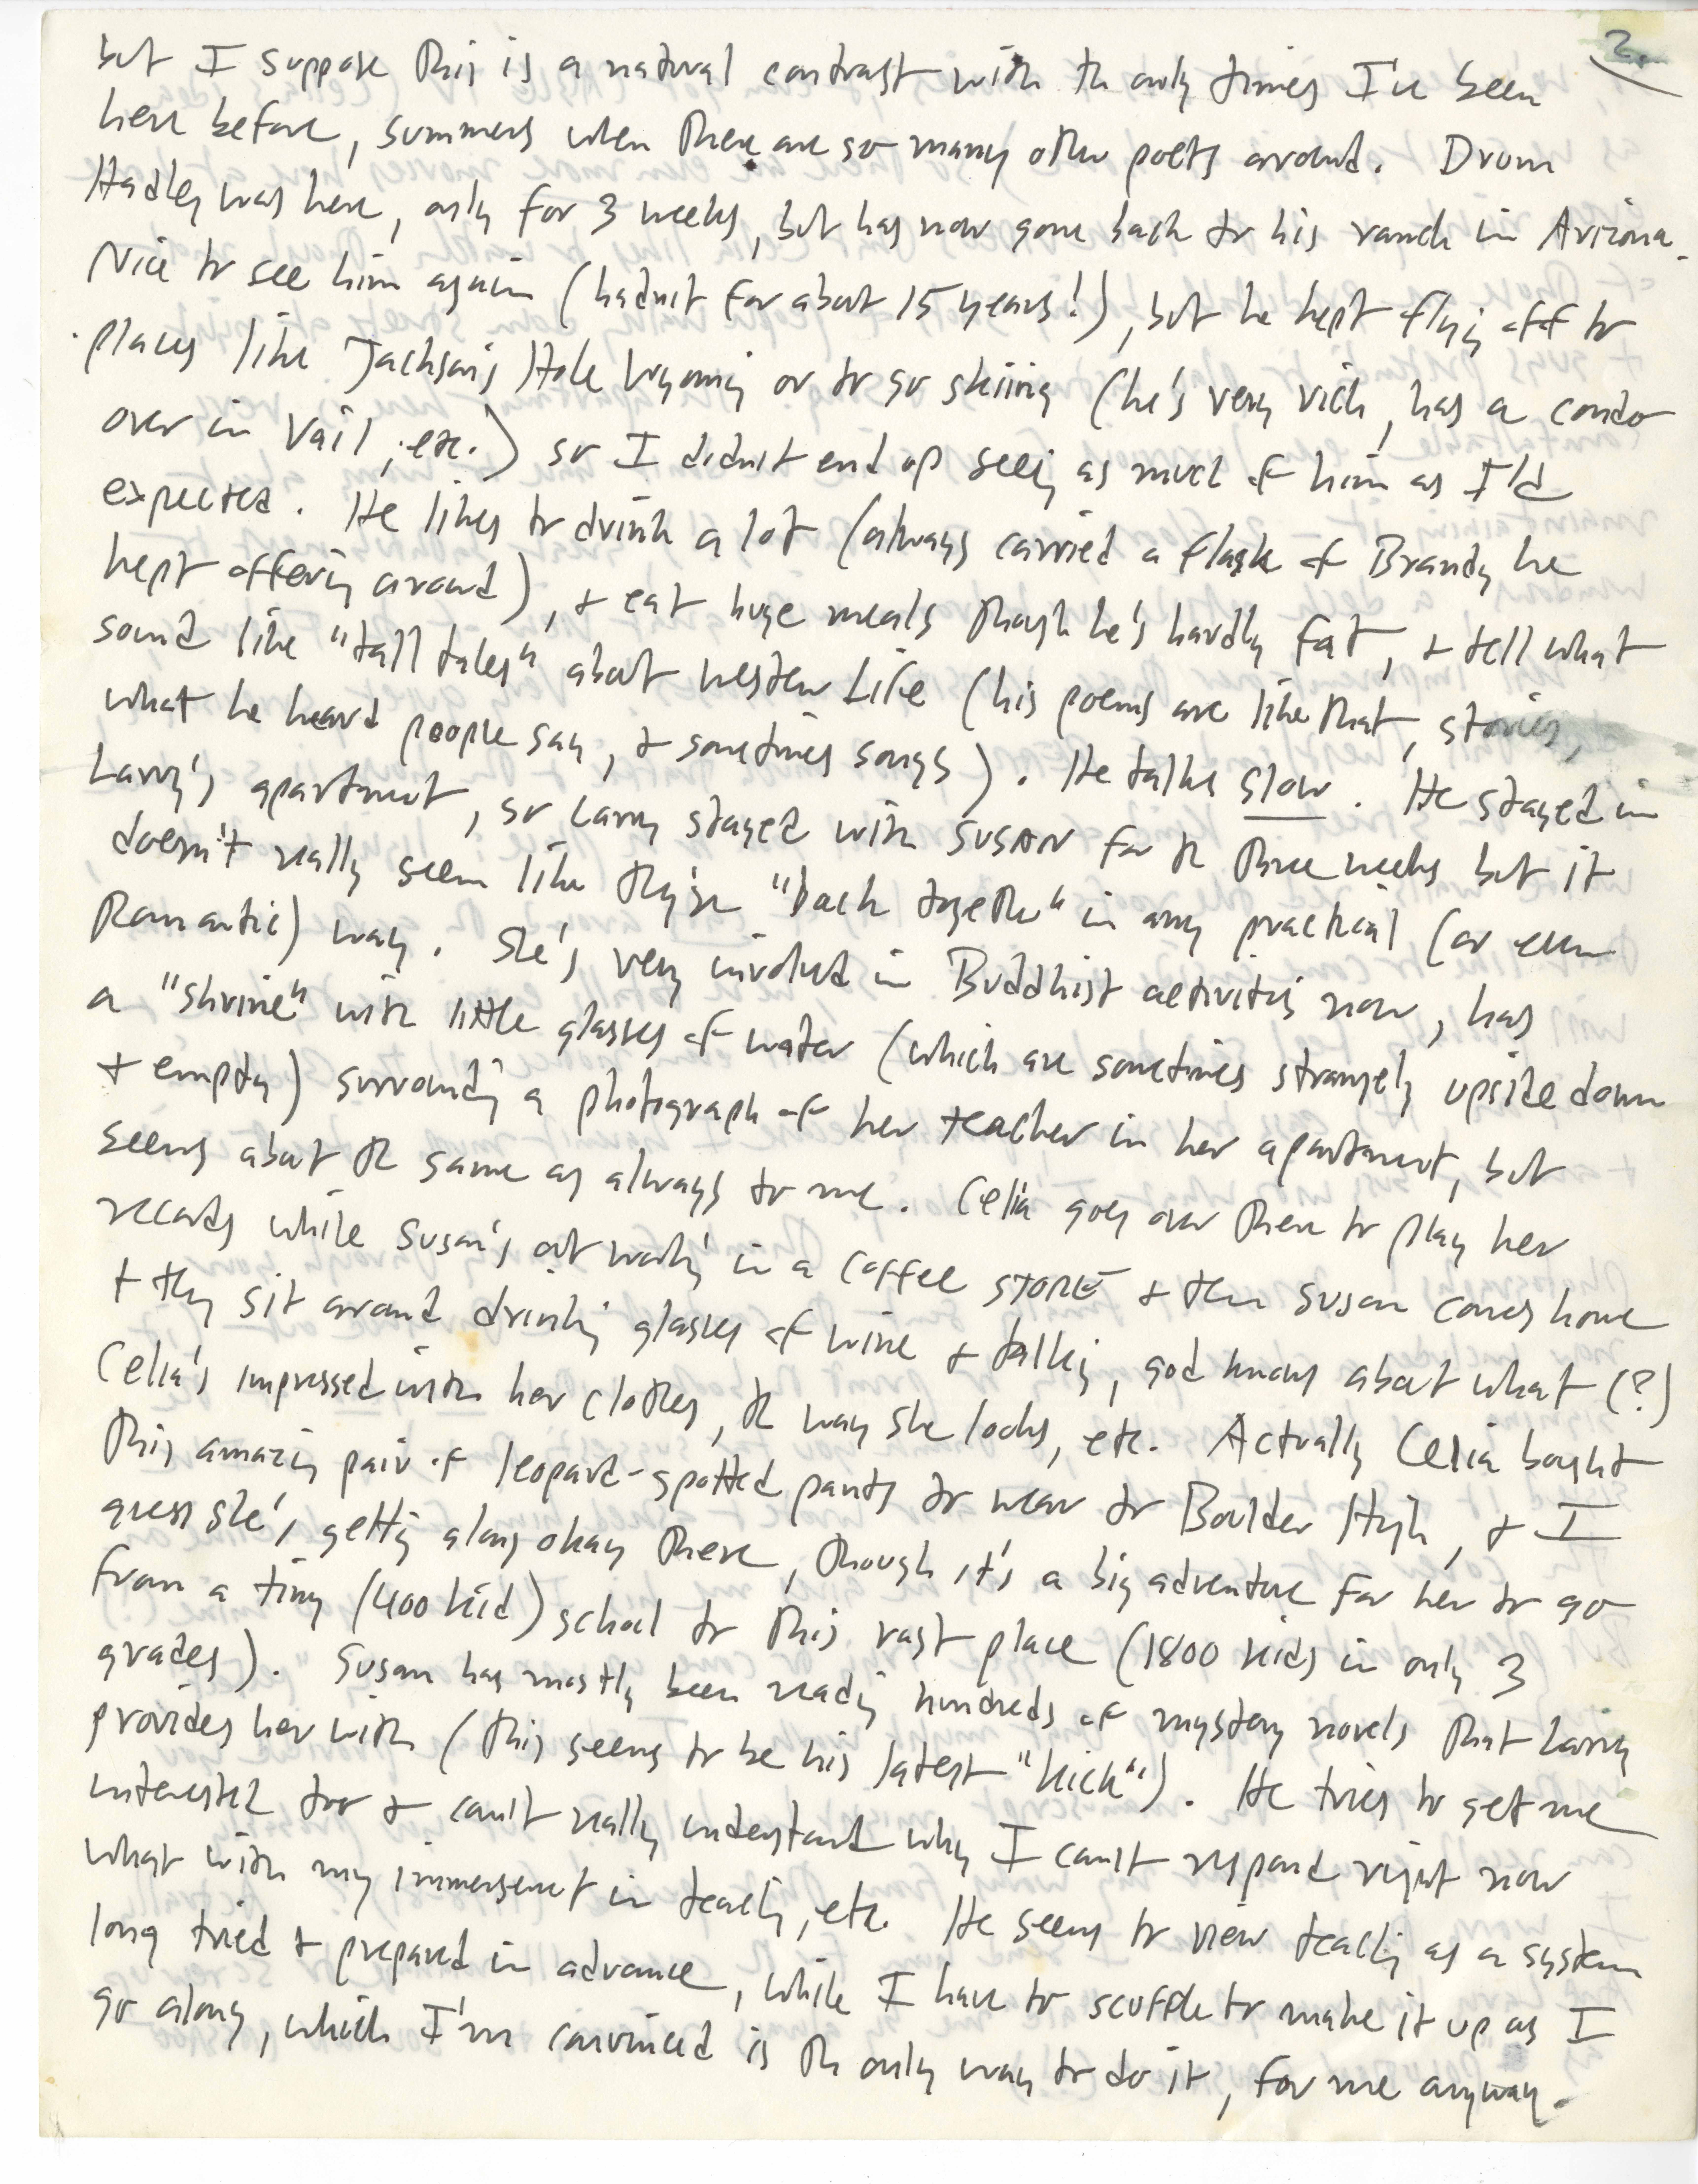 2.
but I suppose this is a natural contrast with the only times I've been
here before, summers when there are so many other poets around. Drum
Hadley was here, only for 3 weeks, but has now gone back to his ranch in Arizona.
Nice to see him again (hadn't for about 15 years!), but he kept flying off to
places like Jackson's Hole Wyoming or to go skiing (he's very rich, has a condo
over in Vail, etc.) so I didn't end up seeing as much of him as I'd
expected. He likes to drink a lot (always carried a flask of Brandy he
kept offering around), & eat huge meals though he's hardly fat, & tell what
sound like "tall tales" about western life (his poems are like that, stories,
what he heard people say, & sometimes songs). He talks slow. He stayed in
Larry's apartment, so Larry stayed with SUSAN for the three weeks but it
doesn't really seem like they're "back together" in any practical (or even
Romantic) way. She's very involved in Buddhist activities now, has
a "shrine" with little glasses of water (which are sometimes strangely upside down
& empty) surrounding a photograph of her teacher in her apartment, but
seems about the same as always to me. Celia goes over there to play her
records while Susan's out working in a coffee STORE & then Susan comes home
& they sit around drinking glasses of wine & talking, god knows about what (?)
Celia's impressed with her clothes, the way she looks, etc. Actually Celia bought
this amazing pair of leopard-spotted pants to wear to Boulder High, & I
guess she's getting along okay there, though it's a big adventure for her to go
from a tiny (400 kid) school to this vast place (1800 kids in only 3
grades). Susan has mostly been reading hundreds of mystery novels that Larry
provides her with (this seems to be his latest "kick"). He tries to get me
interested too & can't really understand why I can't respond right now
what with my immersement in teaching, etc. He seems to view teaching as a system
long tried & prepared in advance, while I have to scuffle to make it up as I
go along, which I'm convinced is the only way to do it, for me anyway.